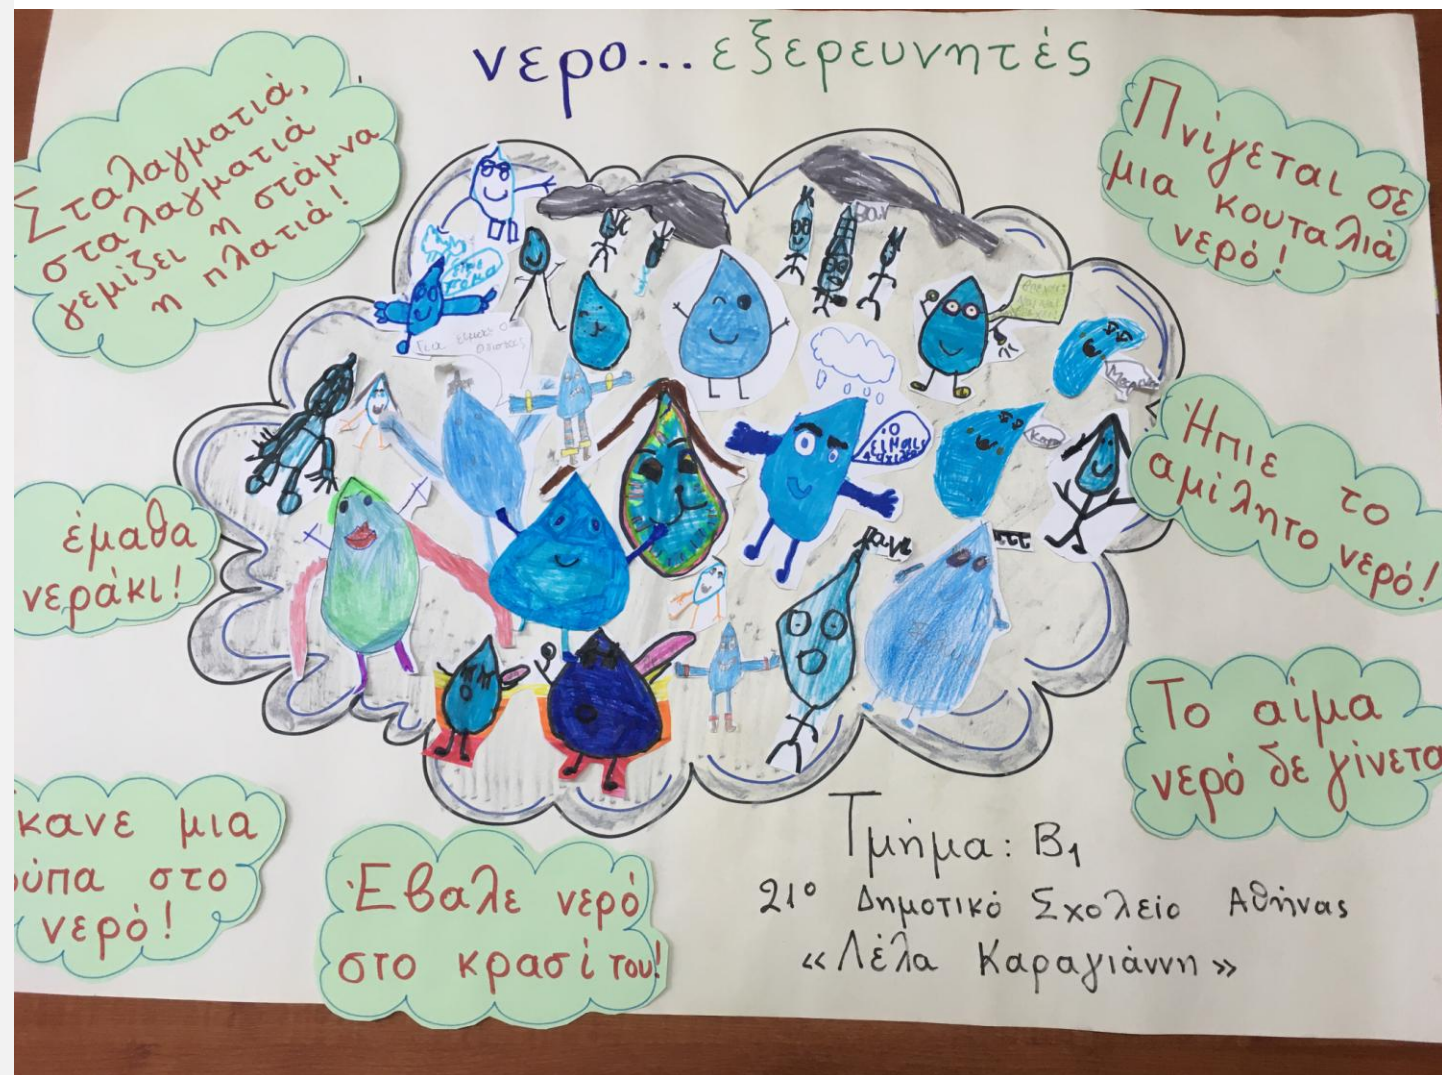 νερο... εξερευνητές
Σταλαγματιά,
σταλαγματιά
γεμίζει η στάμνα
η πλατιά!
Πνίγεται σε
μια κουταλιά
νερό!
Ήπιε το
αμίλητο νερό!
έμαθα
νεράκι!
Το αίμα
νερό δε γίνετα
κανε μια
ύπα στο
νερό!
Έβαλε νερό
στο κρασί του!
Τμήμα: Β1
21º Δημοτικό Σχολείο Αθήνας
«Λέλα Καραγιάννη»